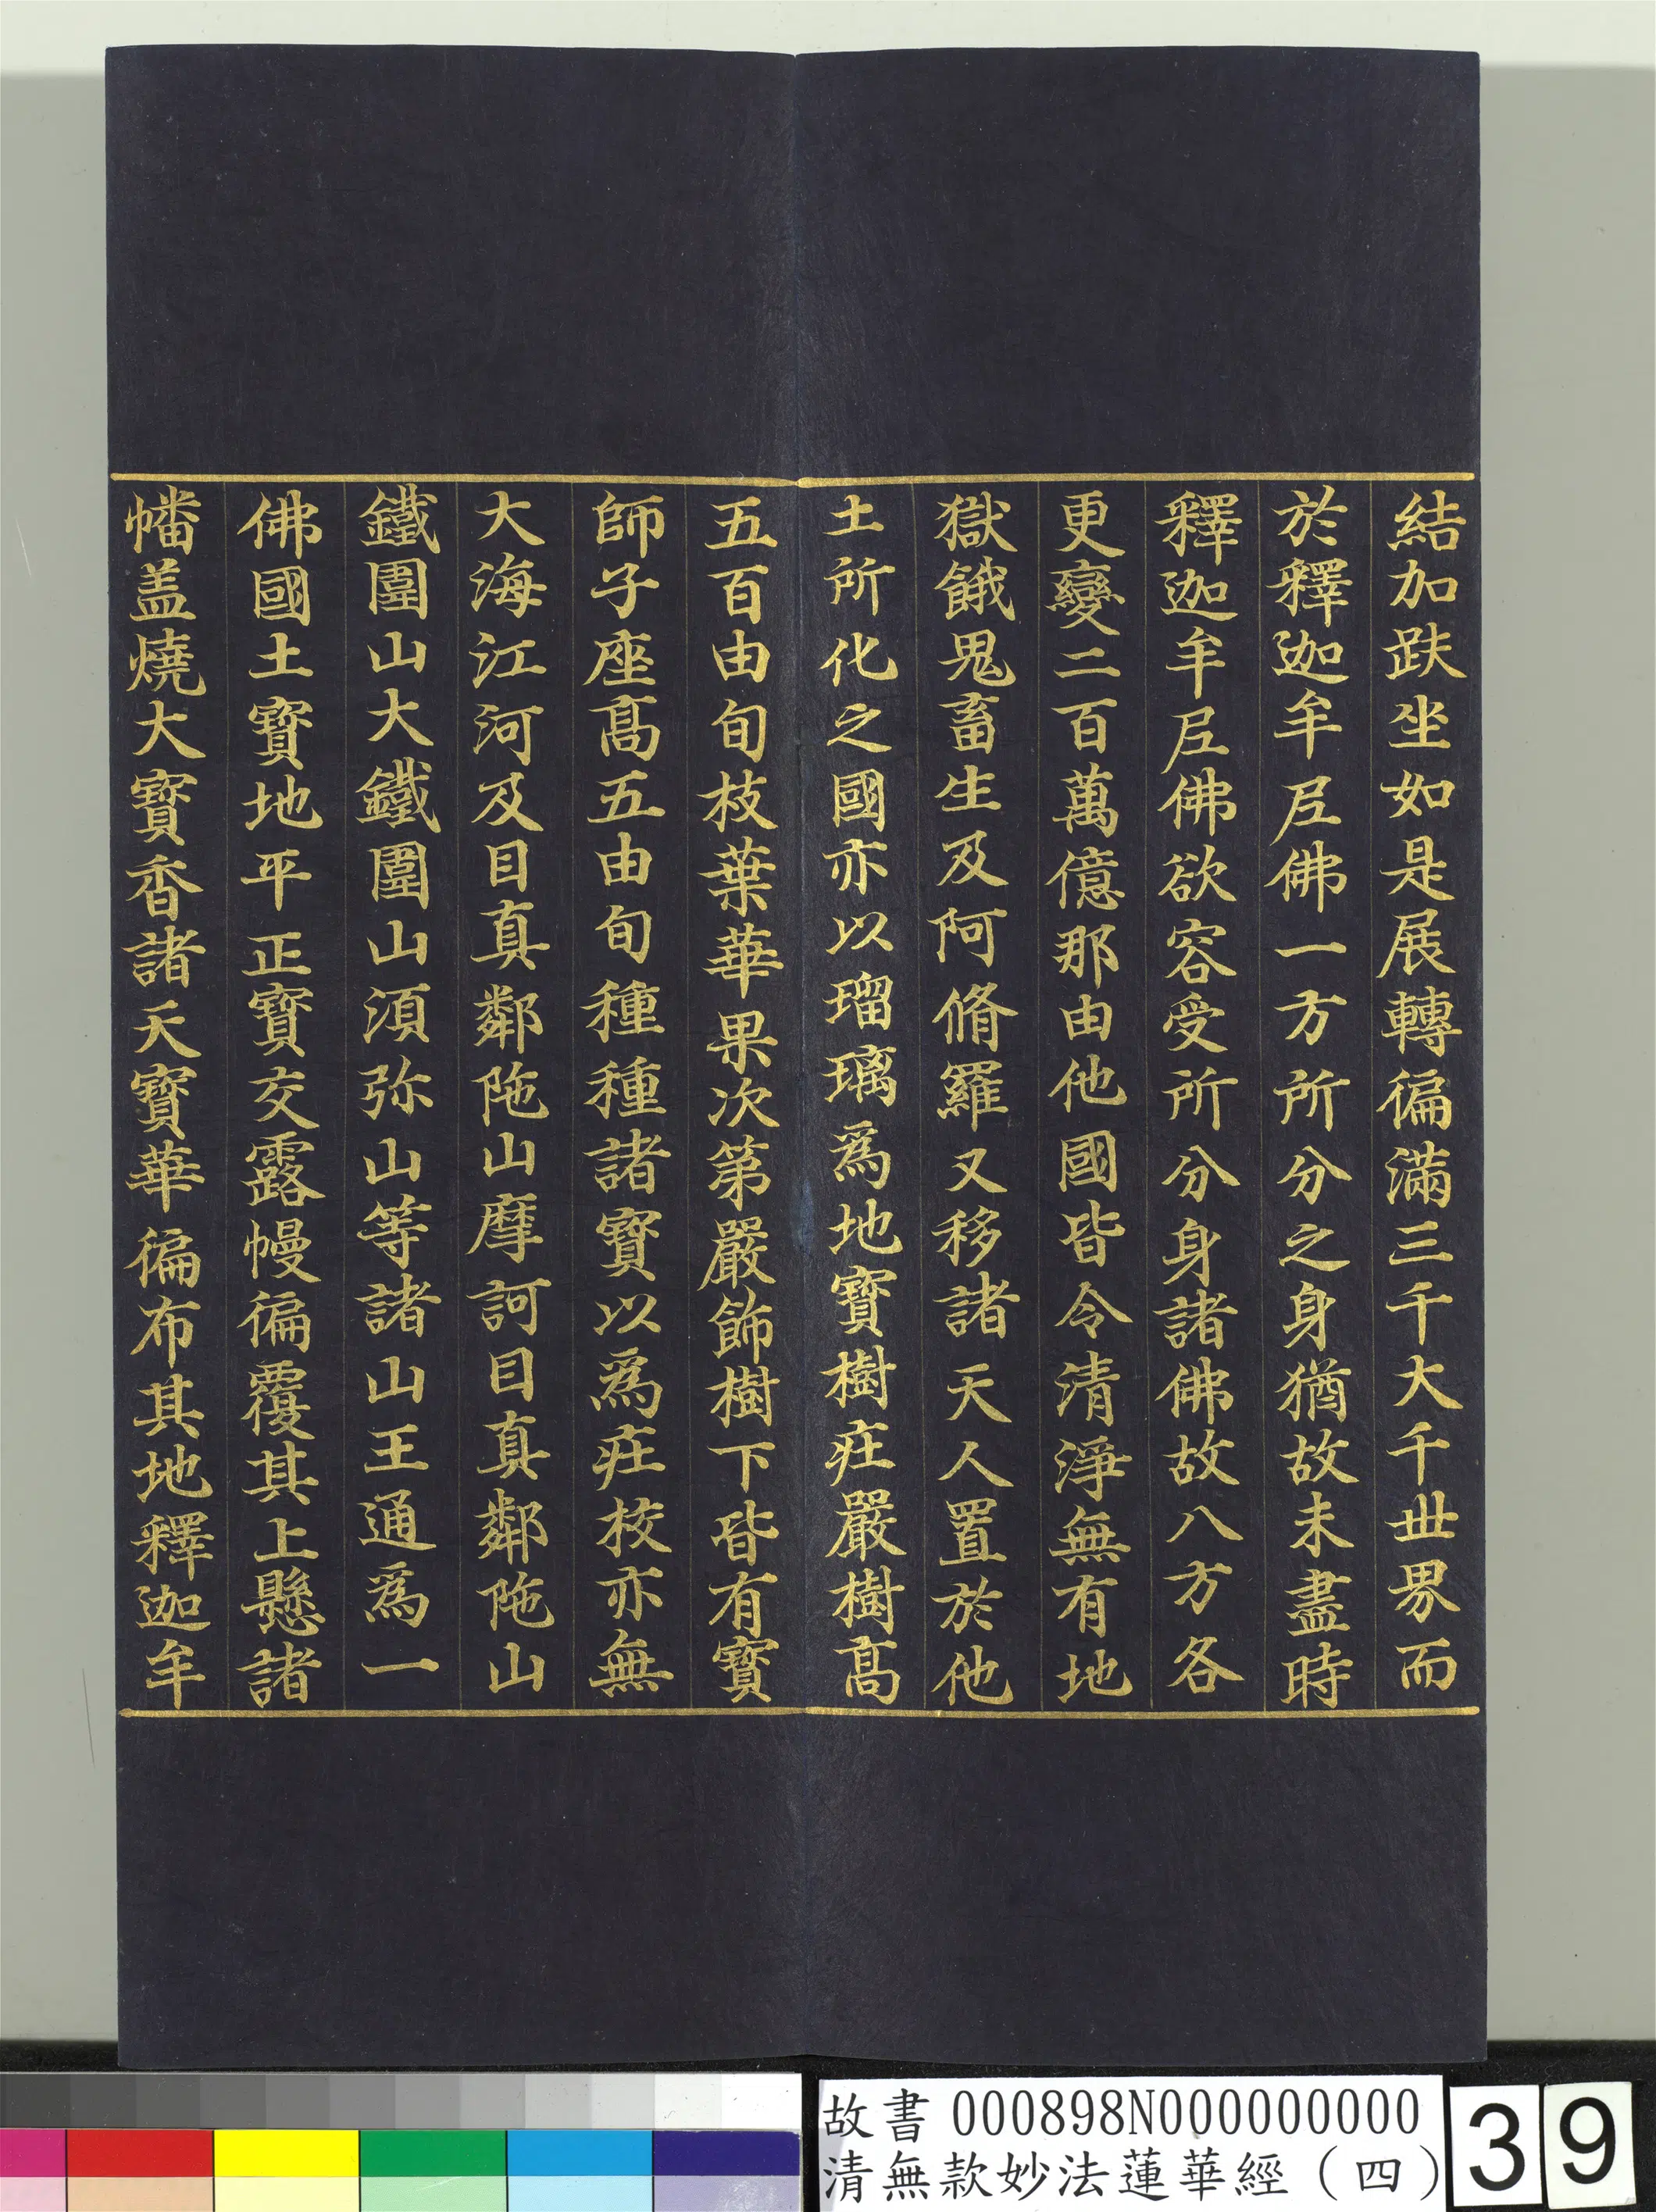 結加趺坐如是展轉徧滿三千大千世界而
於釋迦牟尼佛一方所分之身猶故未盡時
釋迦牟尼佛欲容受所分身諸佛故八方各
更變二百萬億那由他國皆令清淨無有地
獄餓鬼畜生及阿脩羅又移諸天人置於他
土所化之國亦以瑠璃為地寶樹莊嚴樹髙
五百由旬枝葉華果次第嚴飾樹下皆有寶
師子座髙五由旬種種諸寶以為莊校亦無
大海江河及目真鄰陁山摩訶目真鄰陁山
鐵圍山大鐵圍山須弥山等諸山王通為一
佛國土寶地平正寶交露幔徧覆其上懸諸
幡盖燒大寶香諸天寶華徧布其地釋迦牟
故書 000898N000000000
清無款妙法蓮華經（四）
39